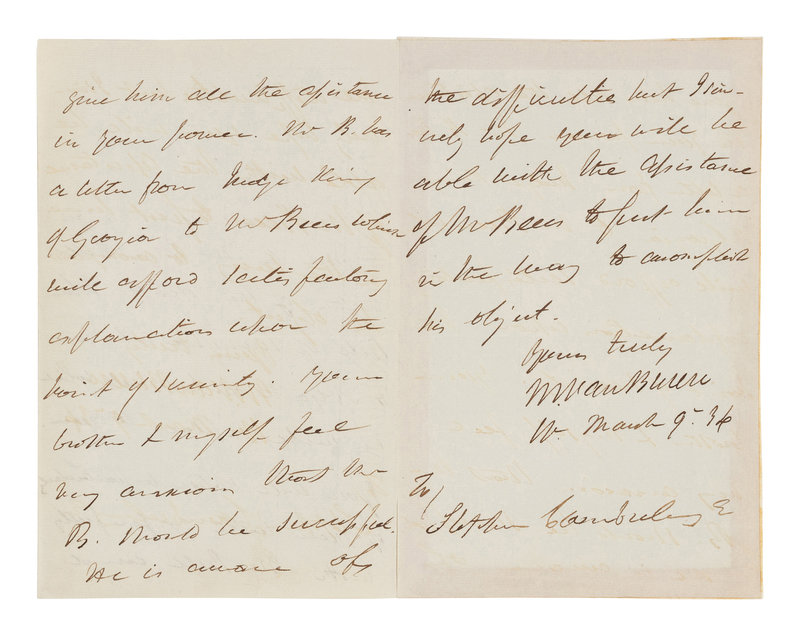 give him all the assistance
in your power. Mr B. has
a letter from Judge King
of Georgia to Mr Beers which
will afford satisfactory
explanations upon the
point of security. Your
brother & myself feel
very anxious that Mr
B. should be successful.
He is aware of
the difficulties but I sin-
cerely hope you will be
able with the assistance
of Mr Beers to put him
in the way to accomplish
his object.
Yours truly
M. Van Buren
W. March 9. 34
To/
Stephen Cambreleng E